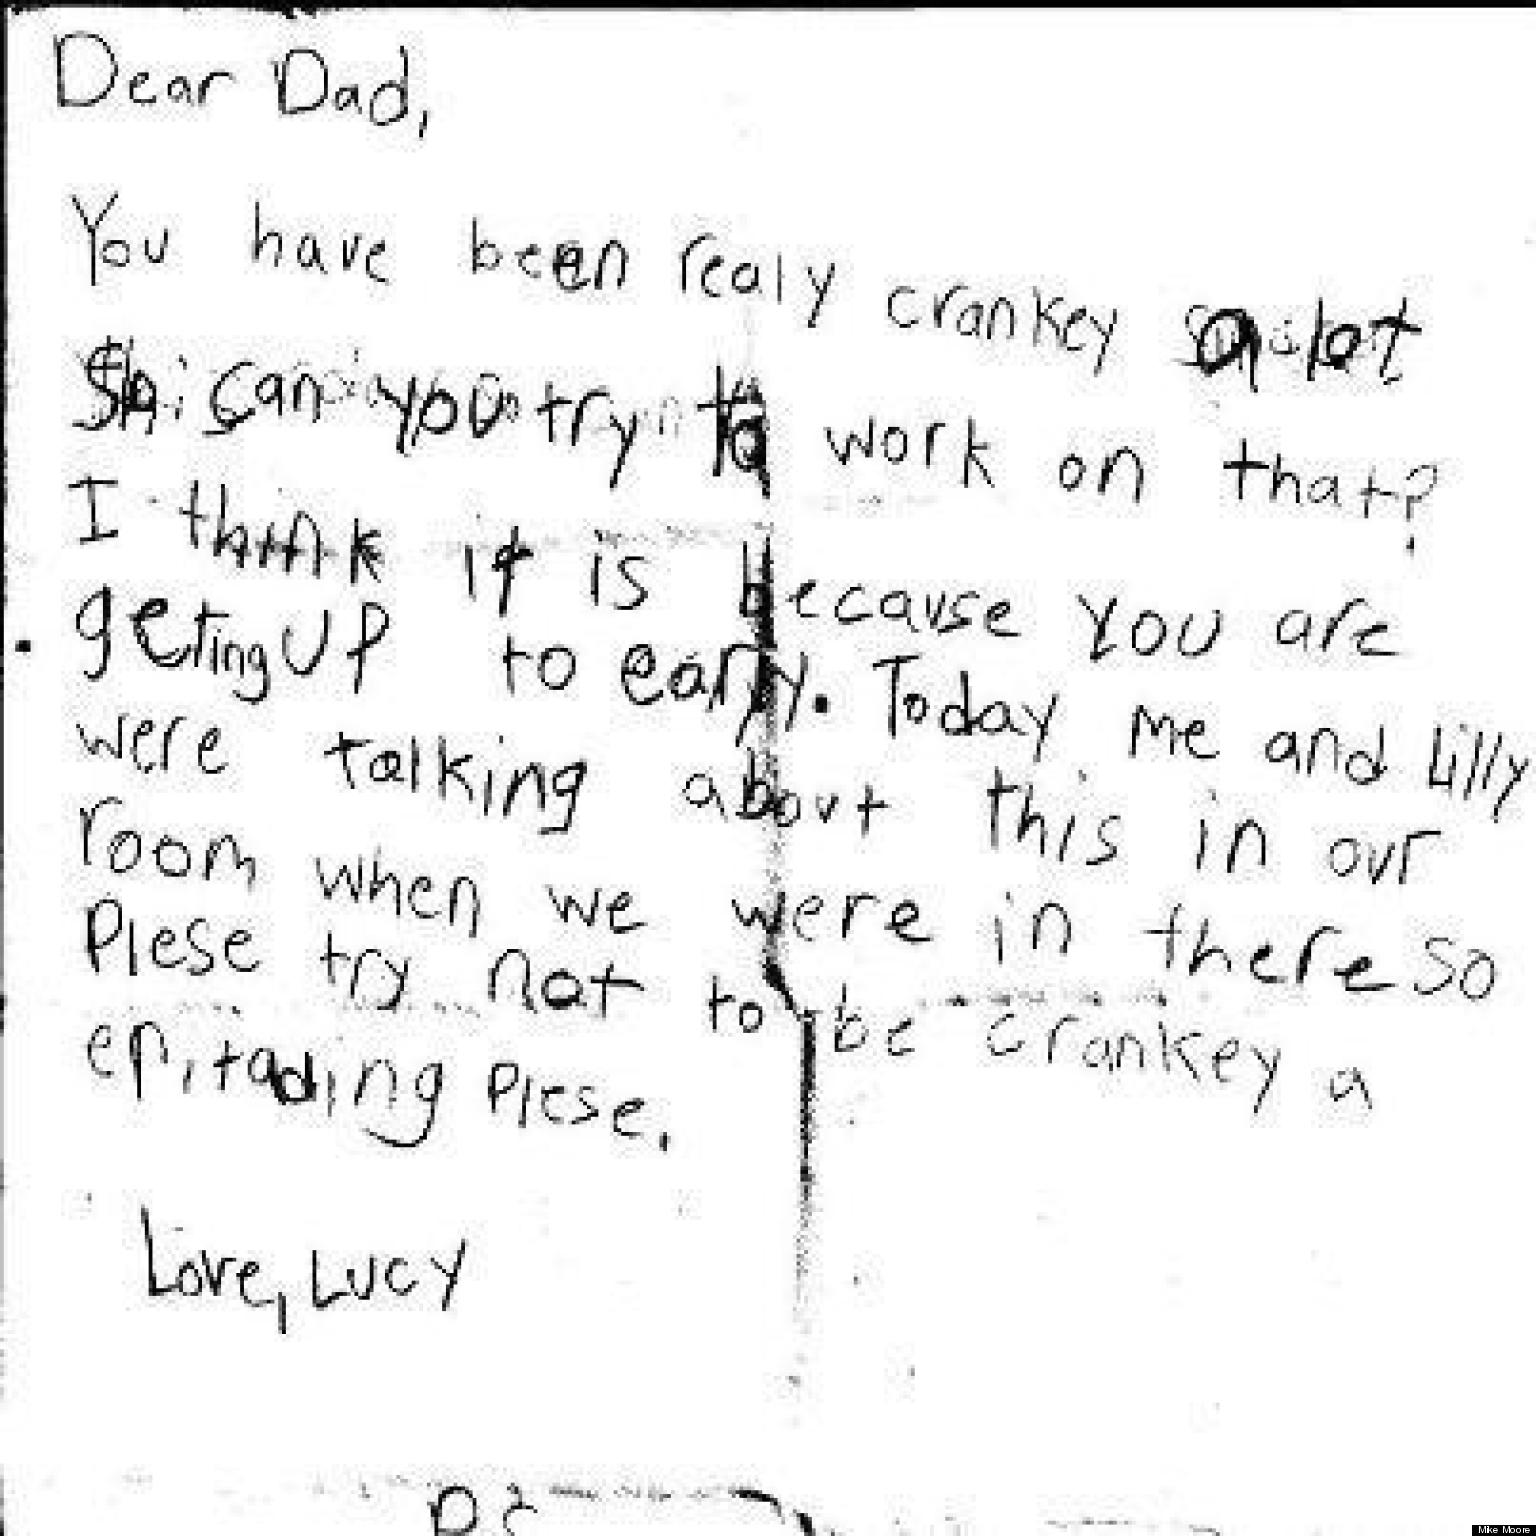 Dear Dad,
You have been realy crankey alot
So can you try to work on that?
I think it is because you are
geting up to early. Today me and Lilly
were talking about this in our
room when we were in there so
Plese try not to be crankey a
epitading Plese.
Love, Lucy
Mike Moore